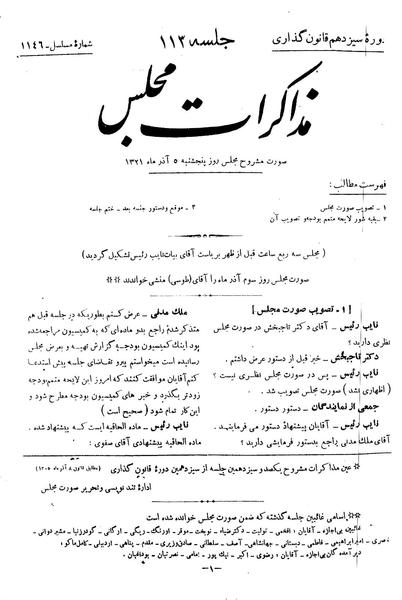 دورهٔ سیزدهم قانون گذاری
جلسه ۱۱۳
شمارهٔ مسلسل ـ ۱۱۴۶
مذاکرات مجلس
صورت مشروح مجلس روز پنجشنبه ۵ آذر ماه ۱۳۲۱
فهرست مطالب:
۱ ـ تصویب صورت مجلس
۲ ـ بقیه شور لایحه متمم بودجه و تصویب آن
۳ ـ موقع و دستور جلسه بعد ـ ختم جلسه
(مجلس سه ربع ساعت قبل از ظهر بریاست آقای بیات نایب رئیس تشکیل گردید)
صورت مجلس روز سوم آذر ماه را آقای (طوسی) منشی خواندند
[۱ ـ تصویب صورت مجلس]
نایب رئیس ـ آقای دکتر تاجبخش در صورت مجلس
نظری دارید؟
دکتر تاجبخش ـ خیر قبل از دستور عرض داشتم.
نایب رئیس ـ پس در صورت مجلس نظری نیست؟
(اظهاری نشد) صورت مجلس تصویب شد.
جمعی از نمایندگان ـ دستور دستور.
نایب رئیس ـ آقایان پیشنهاد دستور می فرمایند.
آقای ملک مدنی راجع بدستور فرمایشی دارید؟
ملک مدنی ـ عرض کنم بطوریکه در جلسه قبل هم
متذکر شدم راجع بدو ماده‌ای که به کمیسیون مراجعه شده
بود اینک کمیسیون بودجه گزارش تهیه و بعرض مجلس
رسانیده است میخواستم پیرو تقاضای جلسه پیش استدعا
کنم آقایان موافقت کنند که امروز این لایحه متمم بودجه
زودتر بگذرد و خبر های کمیسیون بودجه مطرح شود و
این کار تمام شود (صحیح است)
نایب رئیس ـ ماده الحاقیه ایست که پیشنهاد شده.
ماده الحاقیه پیشنهادی آقای صفوی:
عین مذاکرات مشروح یکصد و سیزدهمین جلسه از سیزدهمین دورهٔ قانون گذاری
ادارهٔ تند نویسی و تحریر صورت مجلس
اسامی غائبین جلسه گذشته که ضمن صورت مجلس خوانده شده است
غائبین بی اجازه ـ آقایان: افخمی ـ تولیت ـ دکتر ضیاء ـ نوبخت ـ موقر ـ اورنگ ـ ریگی ـ ارگانی ـ گودرزنیا ـ مشیر دوانی ـ
ناصری ـ امیر ابراهیمی ـ فاطمی ـ دبستانی ـ جهانشاهی ـ آصف ـ سلطانی ـ صادق وزیری ـ مقدم ـ پناهی ـ اردبیلی ـ کامل ماکو.
دیر آمده گان بی اجازه ـ آقایان: رضوی ـ اکبر ـ نیک پور ـ مامی ـ نصرتیان ـ بوداغیان.
ـ۱ـ